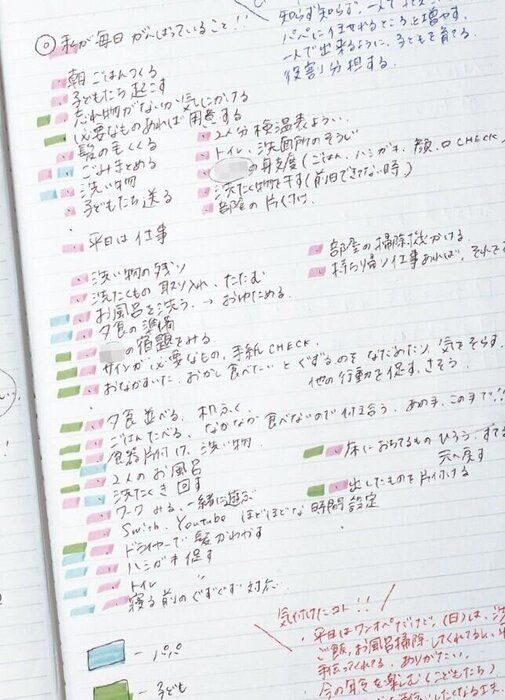 知らず知らず、一人で
パパに任せれるところを増やす。
一人で出来るように、子どもを育てる。
役割分担する。
◎ 私が毎日がんばっていること!!
・朝ごはんつくる
・子どもたち起こす
・忘れ物がないか気にかける
・必要なものあれば用意する
・髪の毛くくる
・2人分検温表よう
・ごみまとめる
・トイレ、洗面所のそうじ
・洗い物
の身支度(ごはん、ハミガキ、顔、口CHECK)
・子どもたち送る
・洗たく物を干す(前日できてない時)
・部屋の片付け
・平日は仕事
・部屋の掃除機かける
・洗い物の残り
・持ち帰り仕事あれば、それ
・洗たくもの取り入れ、たたむ
・お風呂を洗う→おゆためる
・夕食の準備
の宿題をみる
・サインが必要なもの、手紙CHECK
・おなかすいた、おかし食べたいとぐずるのをなだめたり、気をそらす、
他の行動を促す、さそう
・夕食並べる、机ふく
・ごはんたべる、なかなか食べないので付き合う、あの手、この手で!!
・食器片付け、洗い物
・床におちてるものひろう、すてる
元へ戻す
・2人のお風呂
・洗たくき回す
・出したものを片付ける
・ワークみる、一緒に遊ぶ
・Swith、Youtube ほどほどな時間設定
・ドライヤーで髪かわかす
・ハミガキ促す
・トイレ 〃
・寝る前のぐずぐず対応
気付けたコト!!
・平日はワンオペだけど、(日)は、洗
ご飯、お風呂掃除してくれてるし、
手伝ってくれてる、ありがたい。
― パパ
― 子ども